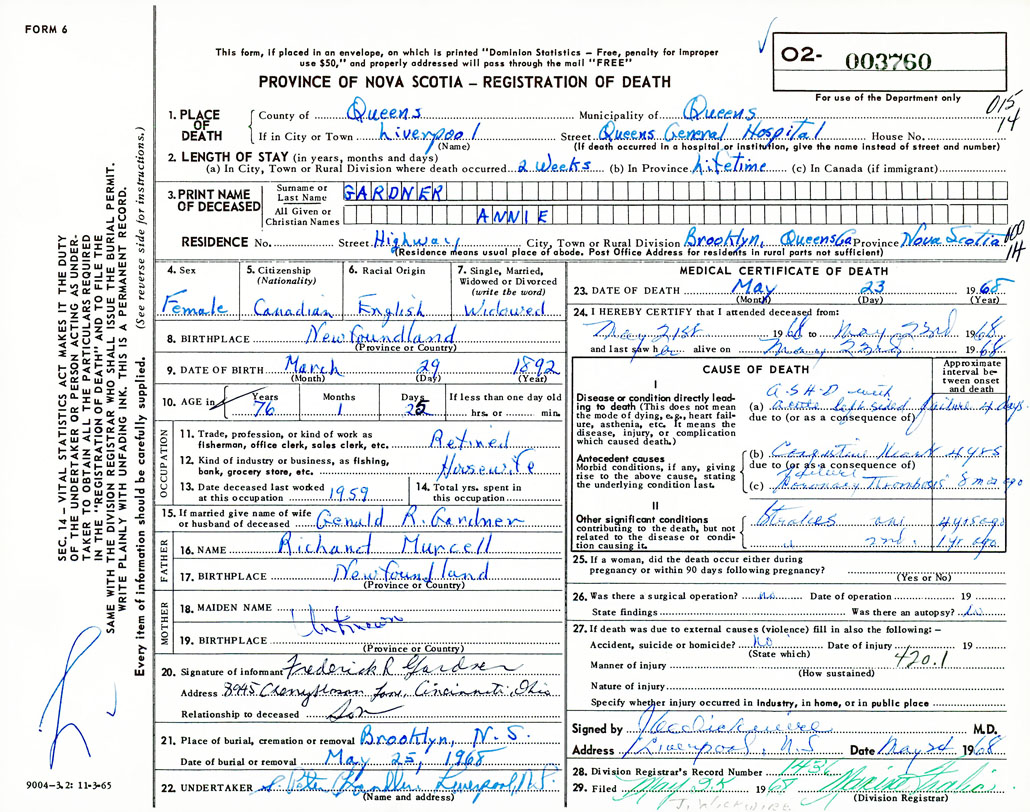 FORM 6
This form, if placed in an envelope, on which is printed "Dominion Statistics – Free, penalty for improper
use $50," and properly addressed will pass through the mail "FREE"
PROVINCE OF NOVA SCOTIA – REGISTRATION OF DEATH
O2- 003760
For use of the Department only
015
14
1. PLACE OF DEATH
County of Queens Municipality of Queens
If in City or Town Liverpool Street Queens General Hospital House No.
(Name) (If death occurred in a hospital or institution, give the name instead of street and number)
2. LENGTH OF STAY (in years, months and days)
(a) In City, Town or Rural Division where death occurred 2 Weeks (b) In Province Lifetime (c) In Canada (if immigrant)
3. PRINT NAME OF DECEASED
Surname or Last Name GARDNER
All Given or Christian Names ANNIE
RESIDENCE No. Street Highway City, Town or Rural Division Brooklyn, Queens Co Province Nova Scotia
(Residence means usual place of abode. Post Office Address for residents in rural parts not sufficient)
14
4. Sex Female
5. Citizenship (Nationality) Canadian
6. Racial Origin English
7. Single, Married, Widowed or Divorced (write the word) Widowed
8. BIRTHPLACE Newfoundland
(Province or Country)
9. DATE OF BIRTH March 29 1892
(Month) (Day) (Year)
10. AGE in Years 76 Months 1 Days 25 If less than one day old hrs. or min.
OCCUPATION
11. Trade, profession, or kind of work as fisherman, office clerk, sales clerk, etc. Retired
12. Kind of industry or business, as fishing, bank, grocery store, etc. Housewife
13. Date deceased last worked at this occupation 1959
14. Total yrs. spent in this occupation
15. If married give name of wife or husband of deceased Gerald R. Gardner
FATHER
16. NAME Richard Murcell
17. BIRTHPLACE Newfoundland
(Province or Country)
MOTHER
18. MAIDEN NAME Unknown
19. BIRTHPLACE
(Province or Country)
20. Signature of informant Frederick R Gardner
Address 8945 Cherryblossom Lane, Cincinnati Ohio
Relationship to deceased Son
21. Place of burial, cremation or removal Brooklyn, N.S.
Date of burial or removal May 25, 1968
22. UNDERTAKER Liverpool, N.S.
(Name and address)
MEDICAL CERTIFICATE OF DEATH
23. DATE OF DEATH May 23 1968
(Month) (Day) (Year)
24. I HEREBY CERTIFY that I attended deceased from:
May 21st 1968 to May 23rd 1968
and last saw her alive on May 23rd 1968
CAUSE OF DEATH
Approximate interval between onset and death
I
Disease or condition directly leading to death (This does not mean the mode of dying, e.g., heart failure, asthenia, etc. It means the disease, injury, or complication which caused death.)
A.S.H.D with
(a) acute left sided failure 4 days
due to (or as a consequence of)
Antecedent causes
Morbid conditions, if any, giving rise to the above cause, stating the underlying condition last.
(b) Congestive Heart 4 yrs
due to (or as a consequence of) failure
(c) Coronary Thrombosis 8 mos ago
II
Other significant conditions contributing to the death, but not related to the disease or condition causing it.
Strokes 4 yrs ago
" 2nd. 1 yr. ago.
25. If a woman, did the death occur either during pregnancy or within 90 days following pregnancy?
(Yes or No)
26. Was there a surgical operation? no Date of operation 19
State findings Was there an autopsy? No
27. If death was due to external causes (violence) fill in also the following:–
Accident, suicide or homicide? No Date of injury 19
(State which)
420.1
Manner of injury
(How sustained)
Nature of injury
Specify whether injury occurred in industry, in home, or in public place
Signed by M.D.
Address Liverpool, N.S Date May 24 1968
28. Division Registrar's Record Number 1431
29. Filed May 24 1968
(Division Registrar)
J. WICKWIRE
SEC. 14 – VITAL STATISTICS ACT MAKES IT THE DUTY
OF THE UNDERTAKER OR PERSON ACTING AS UNDER-
TAKER TO OBTAIN ALL THE PARTICULARS REQUIRED
IN THE "REGISTRATION OF DEATH" AND TO FILE THE
SAME WITH THE DIVISION REGISTRAR WHO SHALL ISSUE THE BURIAL PERMIT.
WRITE PLAINLY WITH UNFADING INK. THIS IS A PERMANENT RECORD.
Every item of information should be carefully supplied. (See reverse side for instructions.)
9004-3.2: 11-3-65